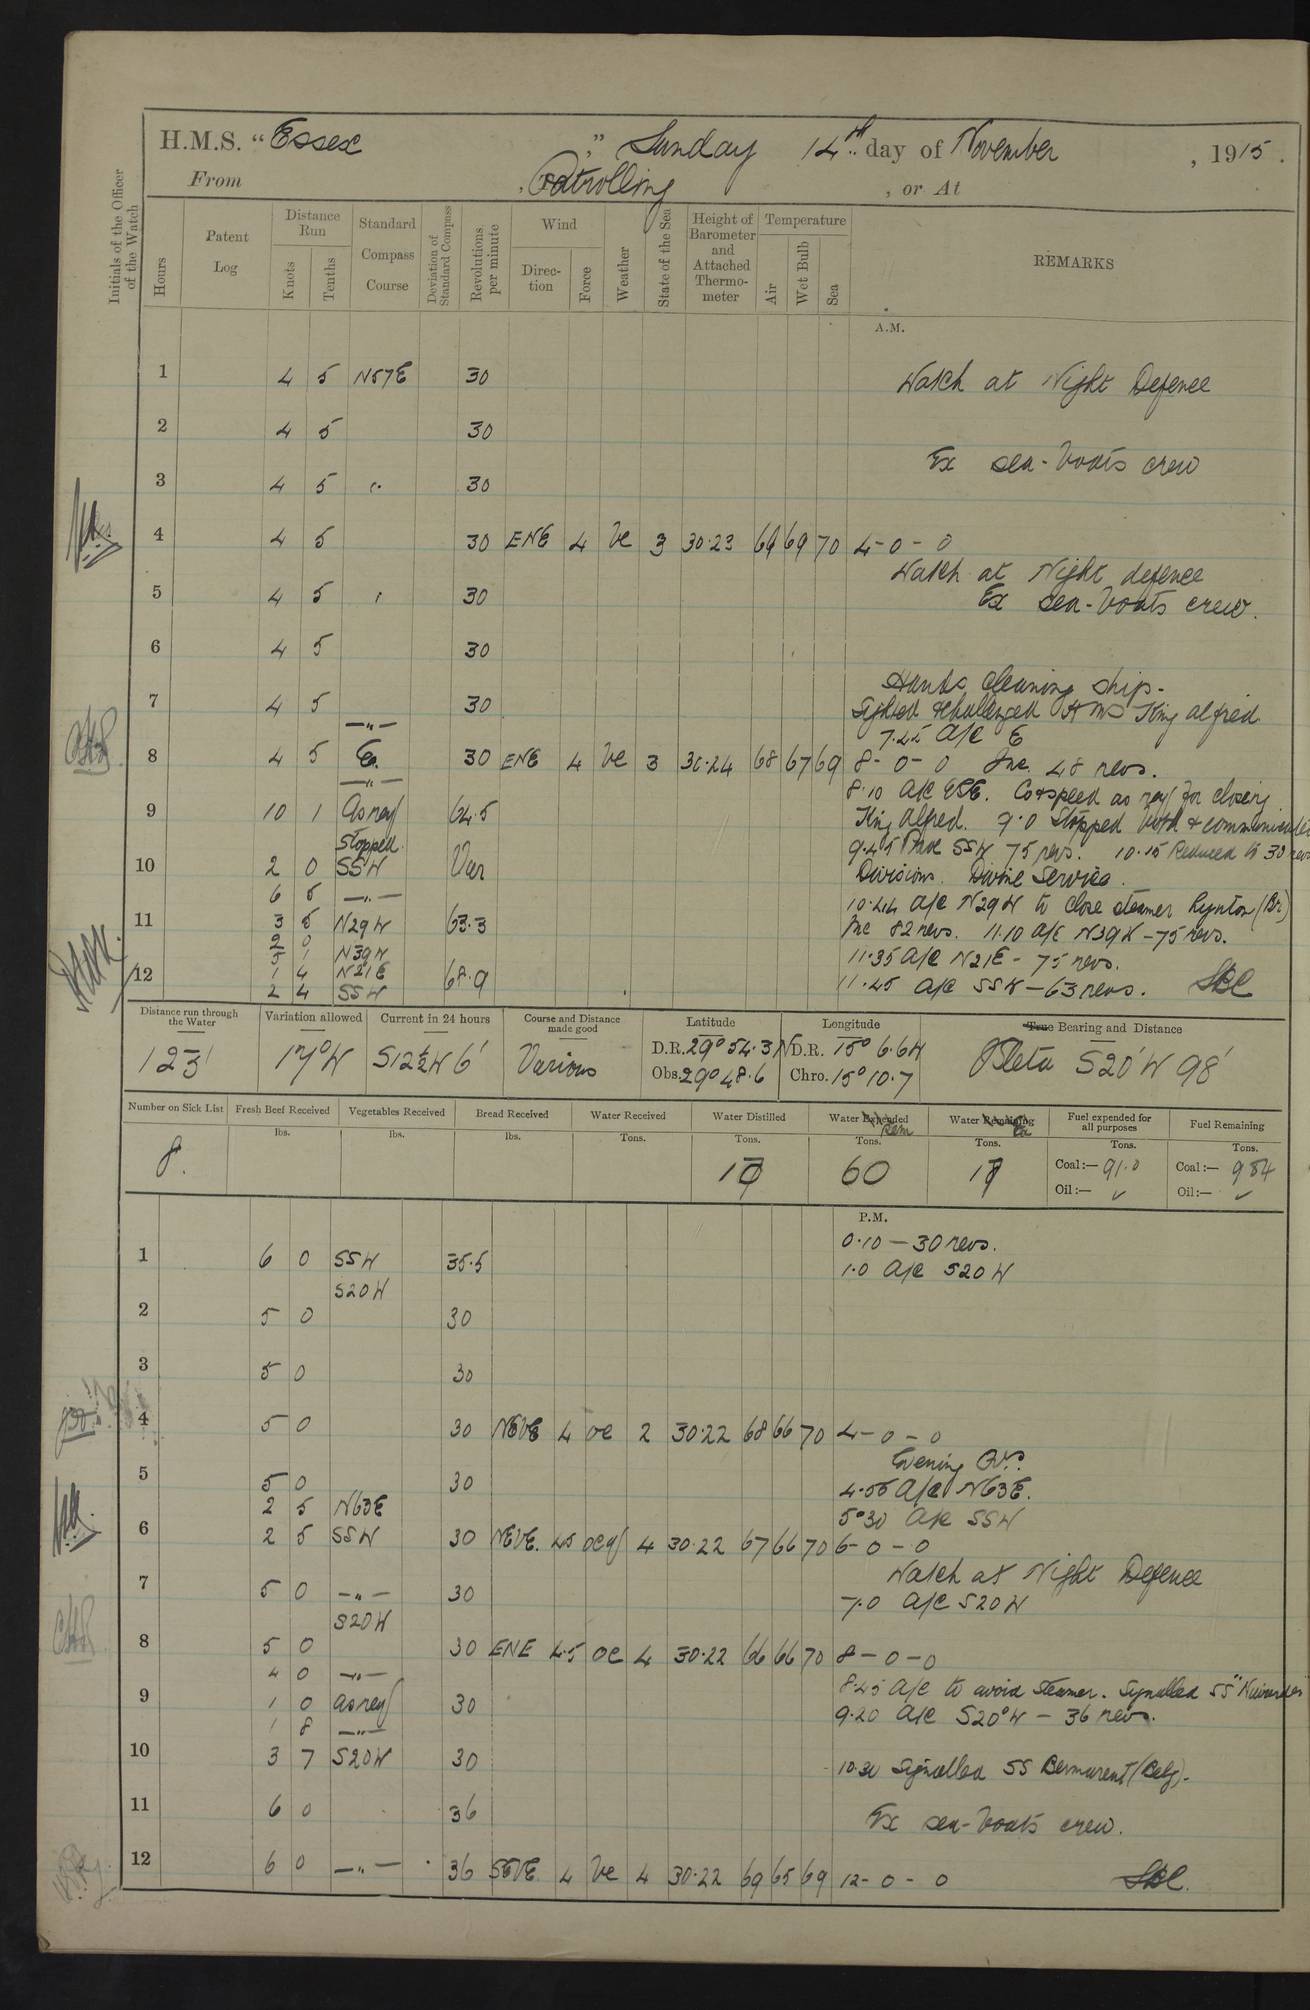 H.M.S. “Essex ,” Sunday 14th day of November , 1915 .
From , Patrolling , or At
Initials of the Officer of the Watch
Hours
Patent Log
Distance Run
Knots
Tenths
Standard Compass Course
Deviation of Standard Compass
Revolutions per minute
Wind
Direc-tion
Force
Weather
State of the Sea
Height of Barometer and Attached Thermo-meter
Temperature
Air
Wet Bulb
Sea
REMARKS
A.M.
1 4 5 N57E 30 Watch at Night Defence
2 4 5 30
Ex sea-boats crew
3 4 5 " 30
4 4 5 30 ENE 4 bc 3 30.23 69 69 70 4-0-0
Watch at Night defence
5 4 5 " 30 Ex sea-boats crew.
6 4 5 30
Hands cleaning ship-
7 4 5 30 Sighted & challenged HMS King Alfred
—"— 7.45 A/C E
8 4 5 E. 30 ENE 4 bc 3 30.24 68 67 69 8-0-0 Inc. 48 revs.
—"— 8.10 A/C ESE. Co & speed as req/ for closing
9 10 1 As req/ 64.5 King Alfred. 9.0 Stopped both & communicated
Stopped 9.45 Proc SSW 75 revs. 10.15 Reduced to 30 revs
10 2 0 SSW Var Divisions. Divine Service.
6 5 —"— 10.44 A/C N29W to close steamer Rynton (Br)
11 3 5 N29W 63.3 Inc 82 revs. 11.10 A/C N39W - 75 revs.
2 0
5 1 N39W 11.35 A/C N21E - 75 revs.
12 1 4 N21E 68.9
2 4 SSW 11.45 A/C SSW - 63 revs.
Distance run through the Water
Variation allowed
Current in 24 hours
Course and Distance made good
Latitude
Longitude
True Bearing and Distance
123' 17°W S12½W 6' Various
D.R. 29° 54.3 N D.R. 15° 6.6W
Obs. 29° 48.6 Chro. 15° 10.7
Isleta S20'W 98'
Number on Sick List
Fresh Beef Received
Vegetables Received
Bread Received
Water Received
Water Distilled
Water Expended Rem
Water Remaining Ex
Fuel expended for all purposes
Fuel Remaining
lbs. lbs. lbs. Tons. Tons. Tons. Tons. Tons. Tons.
8. 60
Coal:— 91.0 Coal:— 984
Oil:— ✓ Oil:— ✓
P.M.
0.10 — 30 revs.
1 6 0 SSW 35.5 1.0 A/C S20W
S20W
2 5 0 30
3 5 0 30
4 5 0 30 NEbE 4 oc 2 30.22 68 66 70 4-0-0
Evening Qrs.
5 5 0 30 4.55 A/C N63E.
2 5 N63E 5.30 A/C SSW
6 2 5 SSW 30 NEbE. 4.5 ocq/ 4 30.22 67 66 70 6-0-0
Watch at Night Defence
7 5 0 —"— 30 7.0 A/C S20W
S20W
8 5 0 30 ENE 4.5 oc 4 30.22 66 66 70 8-0-0
4 0 —"— 8.45 A/C to avoid steamer. Signalled SS
9 1 0 as req/ 30 9.20 A/C S20°W — 36 revs.
1 8 —"—
10 3 7 S20W 30 10.30 Signalled SS (Belg).
11 6 0 36 Ex sea-boats crew.
12 6 0 —"— 36 SEbE 4 bc 4 30.22 69 65 69 12-0-0